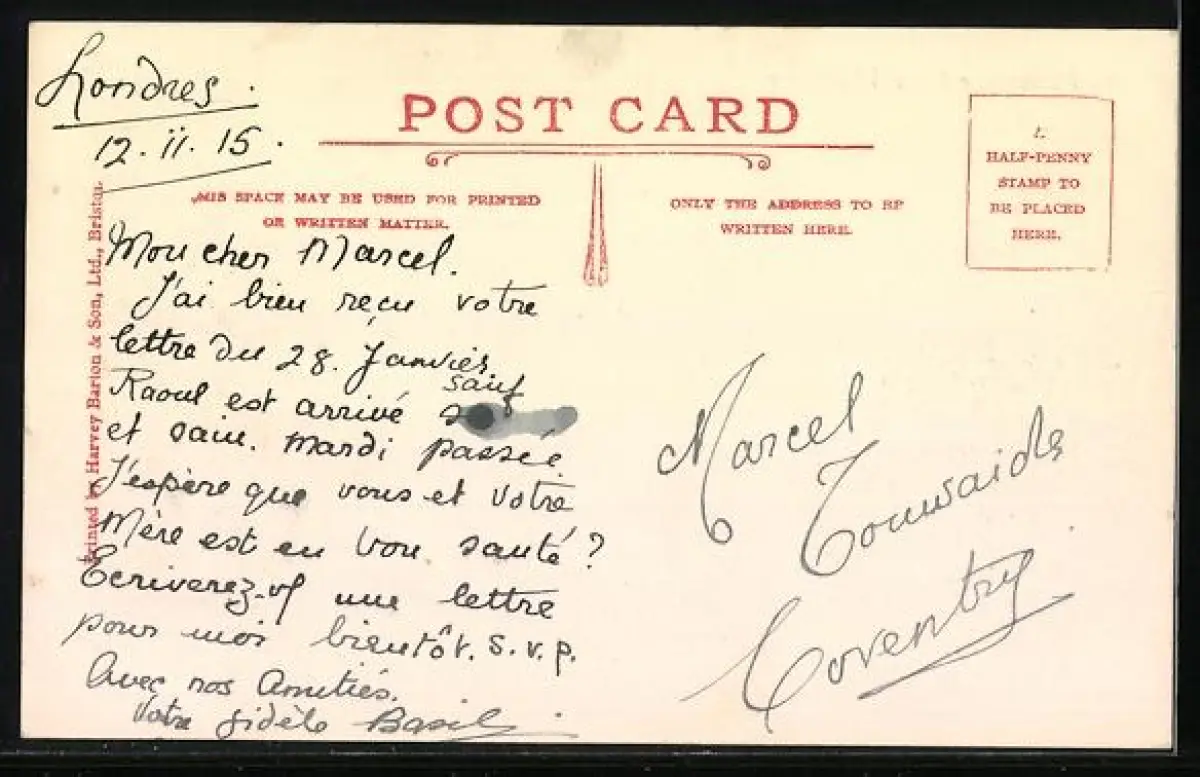 Londres.
12.ii.15.
POST CARD
THIS SPACE MAY BE USED FOR PRINTED
OR WRITTEN MATTER.
ONLY THE ADDRESS TO BE
WRITTEN HERE.
HALF-PENNY
STAMP TO
BE PLACED
HERE.
Printed by Harvey Barton & Son, Ltd., Bristol.
Mon cher Marcel.
J'ai bien reçu votre
lettre du 28. Janvier.
Raoul est arrivé sauf
et sain. Mardi passée.
J'espère que vous et votre
Mère est en bon santé?
Ecriverez-vs une lettre
pour moi bientôt. S.v.p.
Avec nos Amitiés.
Votre fidèle Basil
Marcel
Coventry